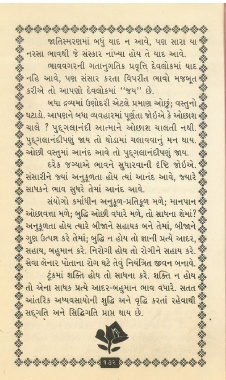 જાતિસ્મરણમાં બધું યાદ ન આવે, પણ સારા યા
નરસા ભાવથી જે સંસ્કાર નાંખ્યા હોય તે યાદ આવે.
ભાવવગરની ગતાનુગતિક પ્રવૃત્તિ દેવલોકમાં યાદ
નહિ આવે, પણ સંસાર કરતા વિપરીત ભાવો મજબૂત
કરીએ તો આપણો દેવલોકમાં "જય" છે.
બધા દ્રવ્યમાં ઉણોદરી એટલે પ્રમાણ ઓછું; વસ્તુનો
ઘટાડો. આપણને બધા વ્યવહારમાં પૂર્ણતા જોઈએ કે ઓછાશ
ચાલે ? પુદ્ગલાનંદી આત્માને ઓછાશ ચાલતી નથી.
પુદ્ગલાનંદીપણું જાય તો થોડામાં ચલાવવાનું મન થાય.
ઓછી વસ્તુમાં આનંદ આવે તો પુદ્ગલાનંદીપણું જાય.
દરેક જગ્યાએ ભાવને સુધારવાની દૃષ્ટિ જોઈએ.
સંસારીને જ્યાં અનુકૂળતા હોય ત્યાં આનંદ આવે, જ્યારે
સાધકને ભાવ સુધરે તેમાં આનંદ આવે.
સંયોગો કર્માધીન અનુકૂળ-પ્રતિકૂળ મળે; માનપાન
ઓછાવત્તા મળે; બુદ્ધિ ઓછી વધારે મળે, તો સાધના શેમાં?
અનુકૂળતા હોય ત્યારે બીજાને સહાયક બને તેમાં, બીજાને
ગુણ ઉત્પન્ન કરે તેમાં; બુદ્ધિ ન હોય તો જ્ઞાની પ્રત્યે આદર,
સહાય, બહુમાન કરે. નિરોગી હોય તો રોગીને સહાય કરે.
સેવા લેનાર પોતાના રોગ ઘટે તેવું નિયંત્રિત જીવન બનાવે.
ટૂંકમાં શક્તિ હોય તો સાધના કરે. શક્તિ ન હોય
તો એના સાધક પ્રત્યે આદર-બહુમાન ભાવ વધારે. સતત
આંતરિક અધ્યવસાયોની શુદ્ધિ અને વૃદ્ધિ કરતાં રહેવાથી
સદ્ગતિ અને સિદ્ધિગતિ પ્રાપ્ત થાય છે.